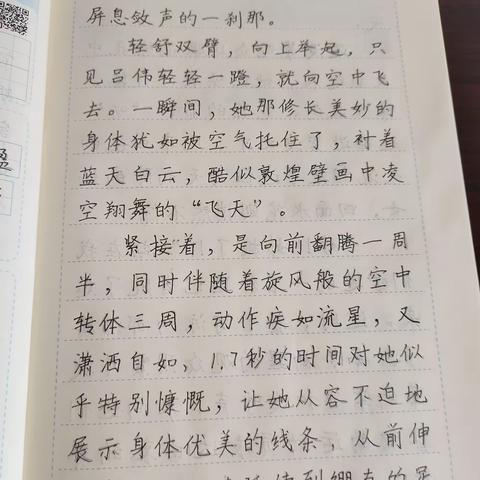 屏息敛声的一刹那。
轻舒双臂，向上举起，只
见吕伟轻轻一蹬，就向空中飞
去。一瞬间，她那修长美妙的
身体犹如被空气托住了，衬着
蓝天白云，酷似敦煌壁画中凌
空翔舞的“飞天”。
紧接着，是向前翻腾一周
半，同时伴随着旋风般的空中
转体三周，动作疾如流星，又
潇洒自如，1.7秒的时间对她似
乎特别慷慨，让她从容不迫地
展示身体优美的线条，从前伸